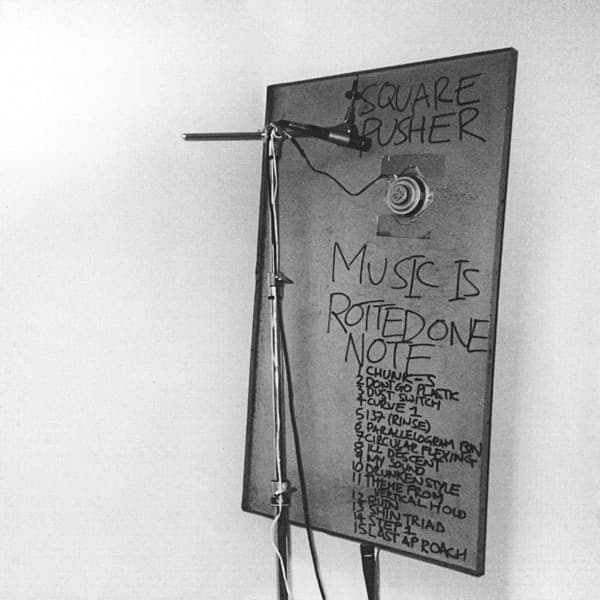 SQUARE
PUSHER
MUSIC IS
ROTTED ONE
NOTE
1 CHUNK-S
2 DON'T GO PLASTIC
3 DUST SWITCH
4 CURVE 1
5 137 (RINSE)
6 PARALLELOGRAM BIN
7 CIRCULAR FLEXING
8 ILL DESCENT
9 MY SOUND
10 DRUNKEN STYLE
11 THEME FROM
VERTICAL HOLD
12 RUIN
13 SHIN TRIAD
14 STEP 1
15 LAST AP ROACH